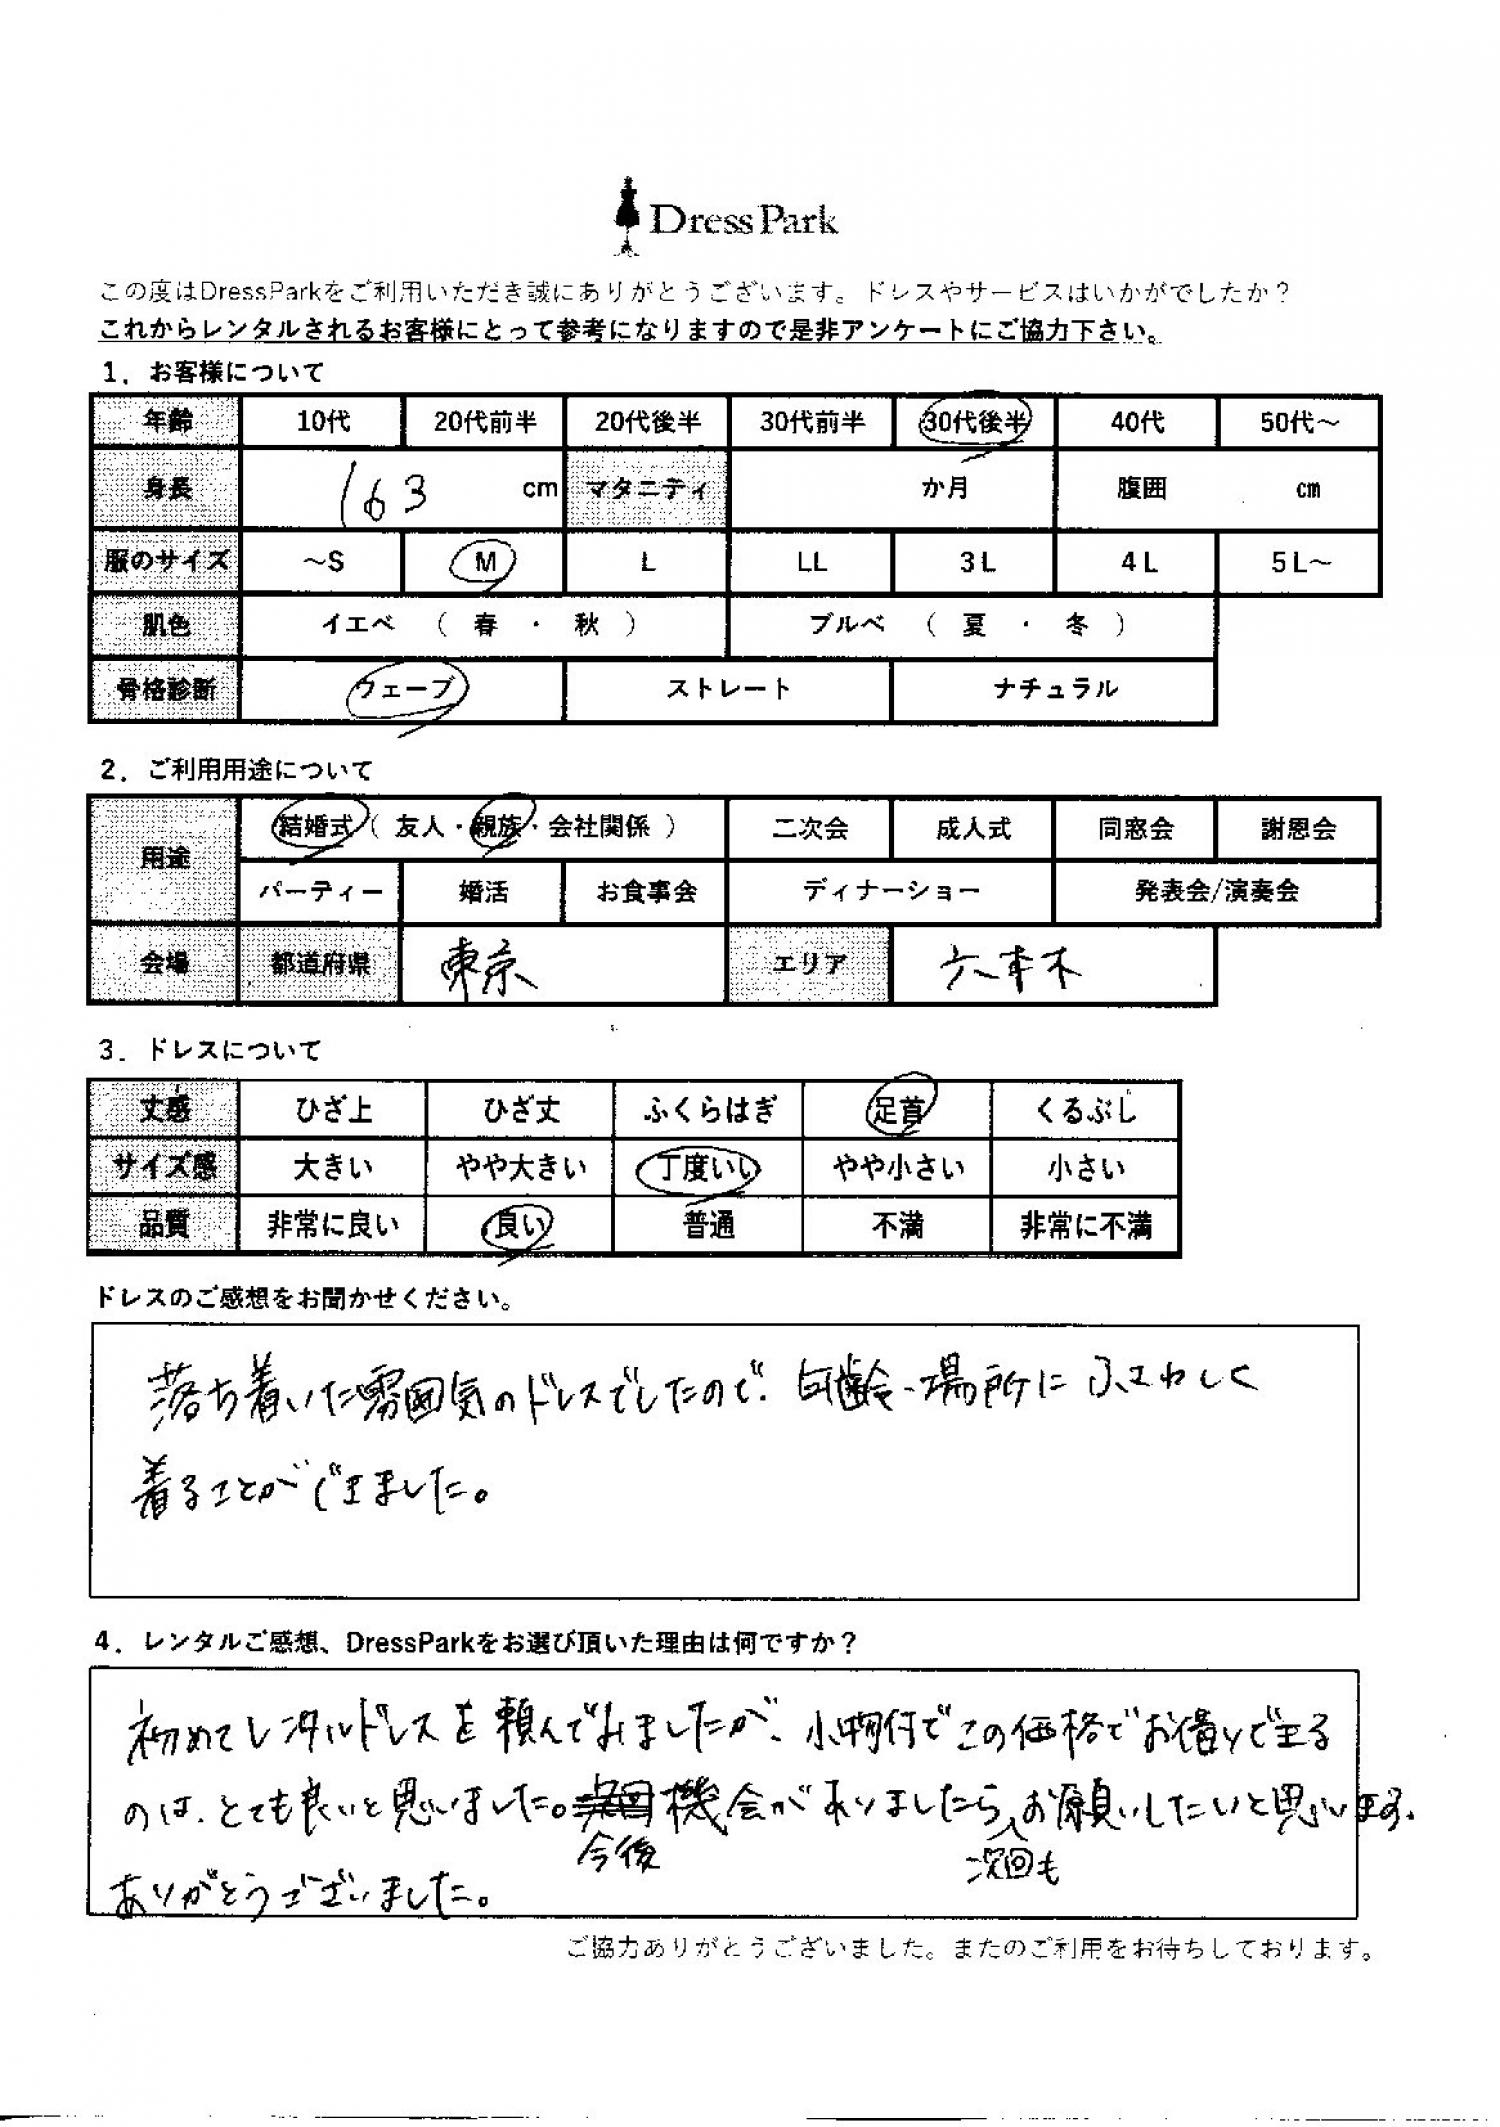 DressPark
この度はDressParkをご利用いただき誠にありがとうございます。ドレスやサービスはいかがでしたか？
これからレンタルされるお客様にとって参考になりますので是非アンケートにご協力下さい。
1．お客様について
年齢 10代 20代前半 20代後半 30代前半 30代後半 40代 50代～
身長 163 cm マタニティ か月 腹囲 cm
服のサイズ ～S M L LL 3L 4L 5L～
肌色 イエベ （ 春 ・ 秋 ） ブルベ （ 夏 ・ 冬 ）
骨格診断 ウェーブ ストレート ナチュラル
2．ご利用用途について
用途 結婚式（ 友人・親族・会社関係 ） 二次会 成人式 同窓会 謝恩会
パーティー 婚活 お食事会 ディナーショー 発表会/演奏会
会場 都道府県 東京 エリア 六本木
3．ドレスについて
丈感 ひざ上 ひざ丈 ふくらはぎ 足首 くるぶし
サイズ感 大きい やや大きい 丁度いい やや小さい 小さい
品質 非常に良い 良い 普通 不満 非常に不満
ドレスのご感想をお聞かせください。
落ち着いた雰囲気のドレスでしたので、年齢・場所にふさわしく
着ることができました。
4．レンタルご感想、DressParkをお選び頂いた理由は何ですか？
初めてレンタルドレスを頼んでみましたが、小物付でこの価格でお借りできる
のは、とても良いと思いました。機会がありましたら、お願いしたいと思います。
今後 次回も
ありがとうございました。
ご協力ありがとうございました。またのご利用をお待ちしております。